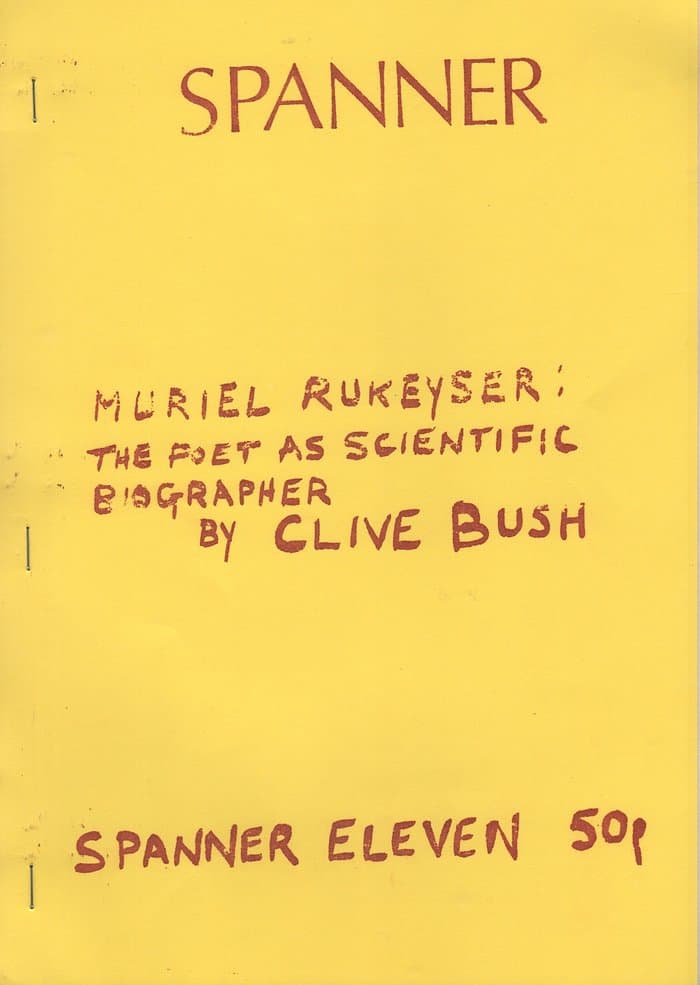 SPANNER
MURIEL RUKEYSER:
THE POET AS SCIENTIFIC
BIOGRAPHER
BY CLIVE BUSH
SPANNER ELEVEN 50p